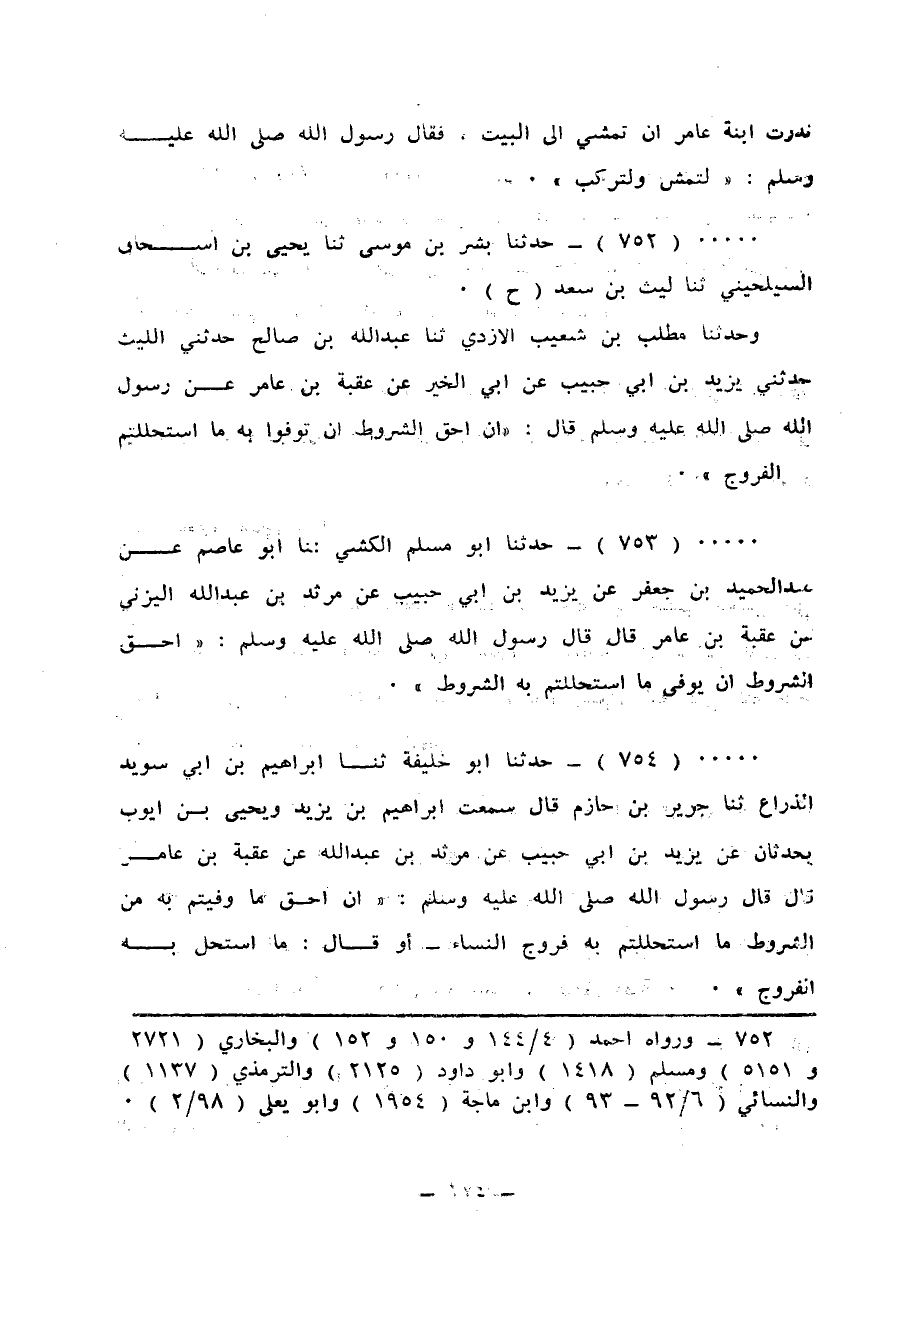 ندرت ابنة عامر ان تمشي الى البيت ، فقال رسول الله صلى الله عليه
وسلم : « لتمش ولتركب » ٠
٠٠٠٠٠ ( ٧٥٢ ) ــ حدثنا بشر بن موسى ثنا يحيى بن اسحاق
السيلحيني ثنا ليث بن سعد ( ح ) ٠
وحدثنا مطلب بن شعيب الازدي ثنا عبدالله بن صالح حدثني الليث
حدثني يزيد بن ابي حبيب عن ابي الخير عن عقبة بن عامر عن رسول
الله صلى الله عليه وسلم قال : «ان احق الشروط ان توفوا به ما استحللتم
الفروج » ٠
٠٠٠٠٠ ( ٧٥٣ ) ــ حدثنا ابو مسلم الكشي ثنا ابو عاصم عن
عبدالحميد بن جعفر عن يزيد بن ابي حبيب عن مرثد بن عبدالله اليزني
عن عقبة بن عامر قال قال رسول الله صلى الله عليه وسلم : « احق
الشروط ان يوفى ما استحللتم به الشروط » ٠
٠٠٠٠٠ ( ٧٥٤ ) ــ حدثنا ابو خليفة ثنا ابراهيم بن ابي سويد
الذراع ثنا جرير بن حازم قال سمعت ابراهيم بن يزيد ويحيى بن ايوب
يحدثان عن يزيد بن ابي حبيب عن مرثد بن عبدالله عن عقبة بن عامر
قال قال رسول الله صلى الله عليه وسلم : « ان احق ما وفيتم به من
الشروط ما استحللتم به فروج النساء ــ أو قال : ما استحل به
الفروج » ٠
٧٥٢ ــ ورواه احمد ( ١٤٤/٤ و ١٥٠ و ١٥٢ ) والبخاري ( ٢٧٢١
و ٥١٥١ ) ومسلم ( ١٤١٨ ) وابو داود ( ٢١٢٥ ) والترمذي ( ١١٣٧ )
والنسائي ( ٩٢/٦ ــ ٩٣ ) وابن ماجة ( ١٩٥٤ ) وابو يعلى ( ٢/٩٨ ) ٠